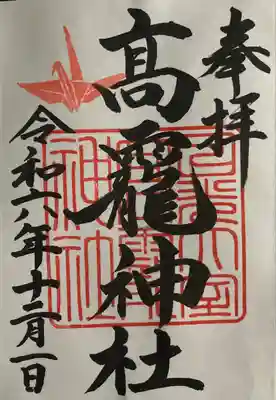 奉拝
髙靇神社
令和六年十二月一日